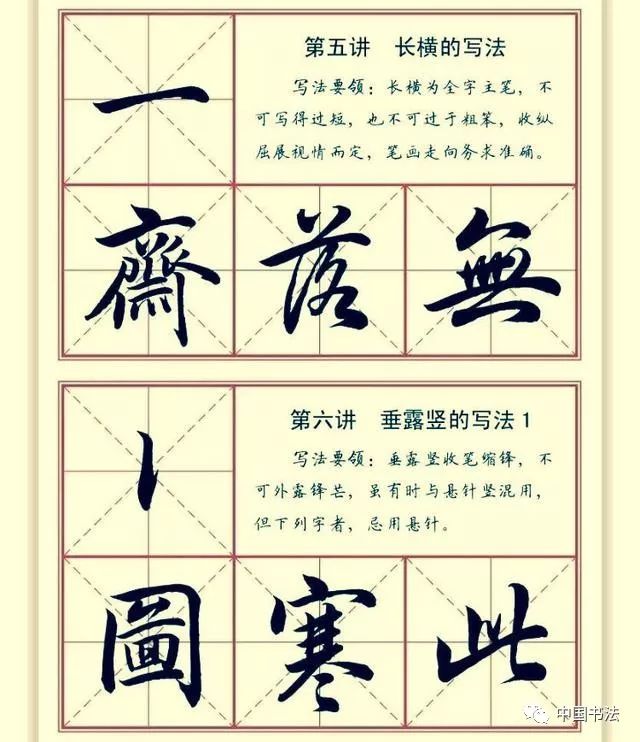 一
第五讲　长横的写法
写法要领：长横为全字主笔，不
可写得过短，也不可过于粗笨，收纵
屈展视情而定，笔画走向务求准确。
齋 落 無
第六讲　垂露竖的写法1
写法要领：垂露竖收笔缩锋，不
可外露锋芒，虽有时与悬针竖混用，
但下列字者，忌用悬针。
圖 寒 此
中国书法